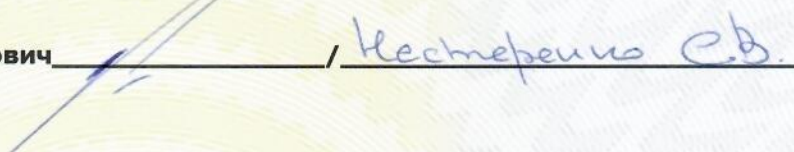 ович / Нестеренко С.В.